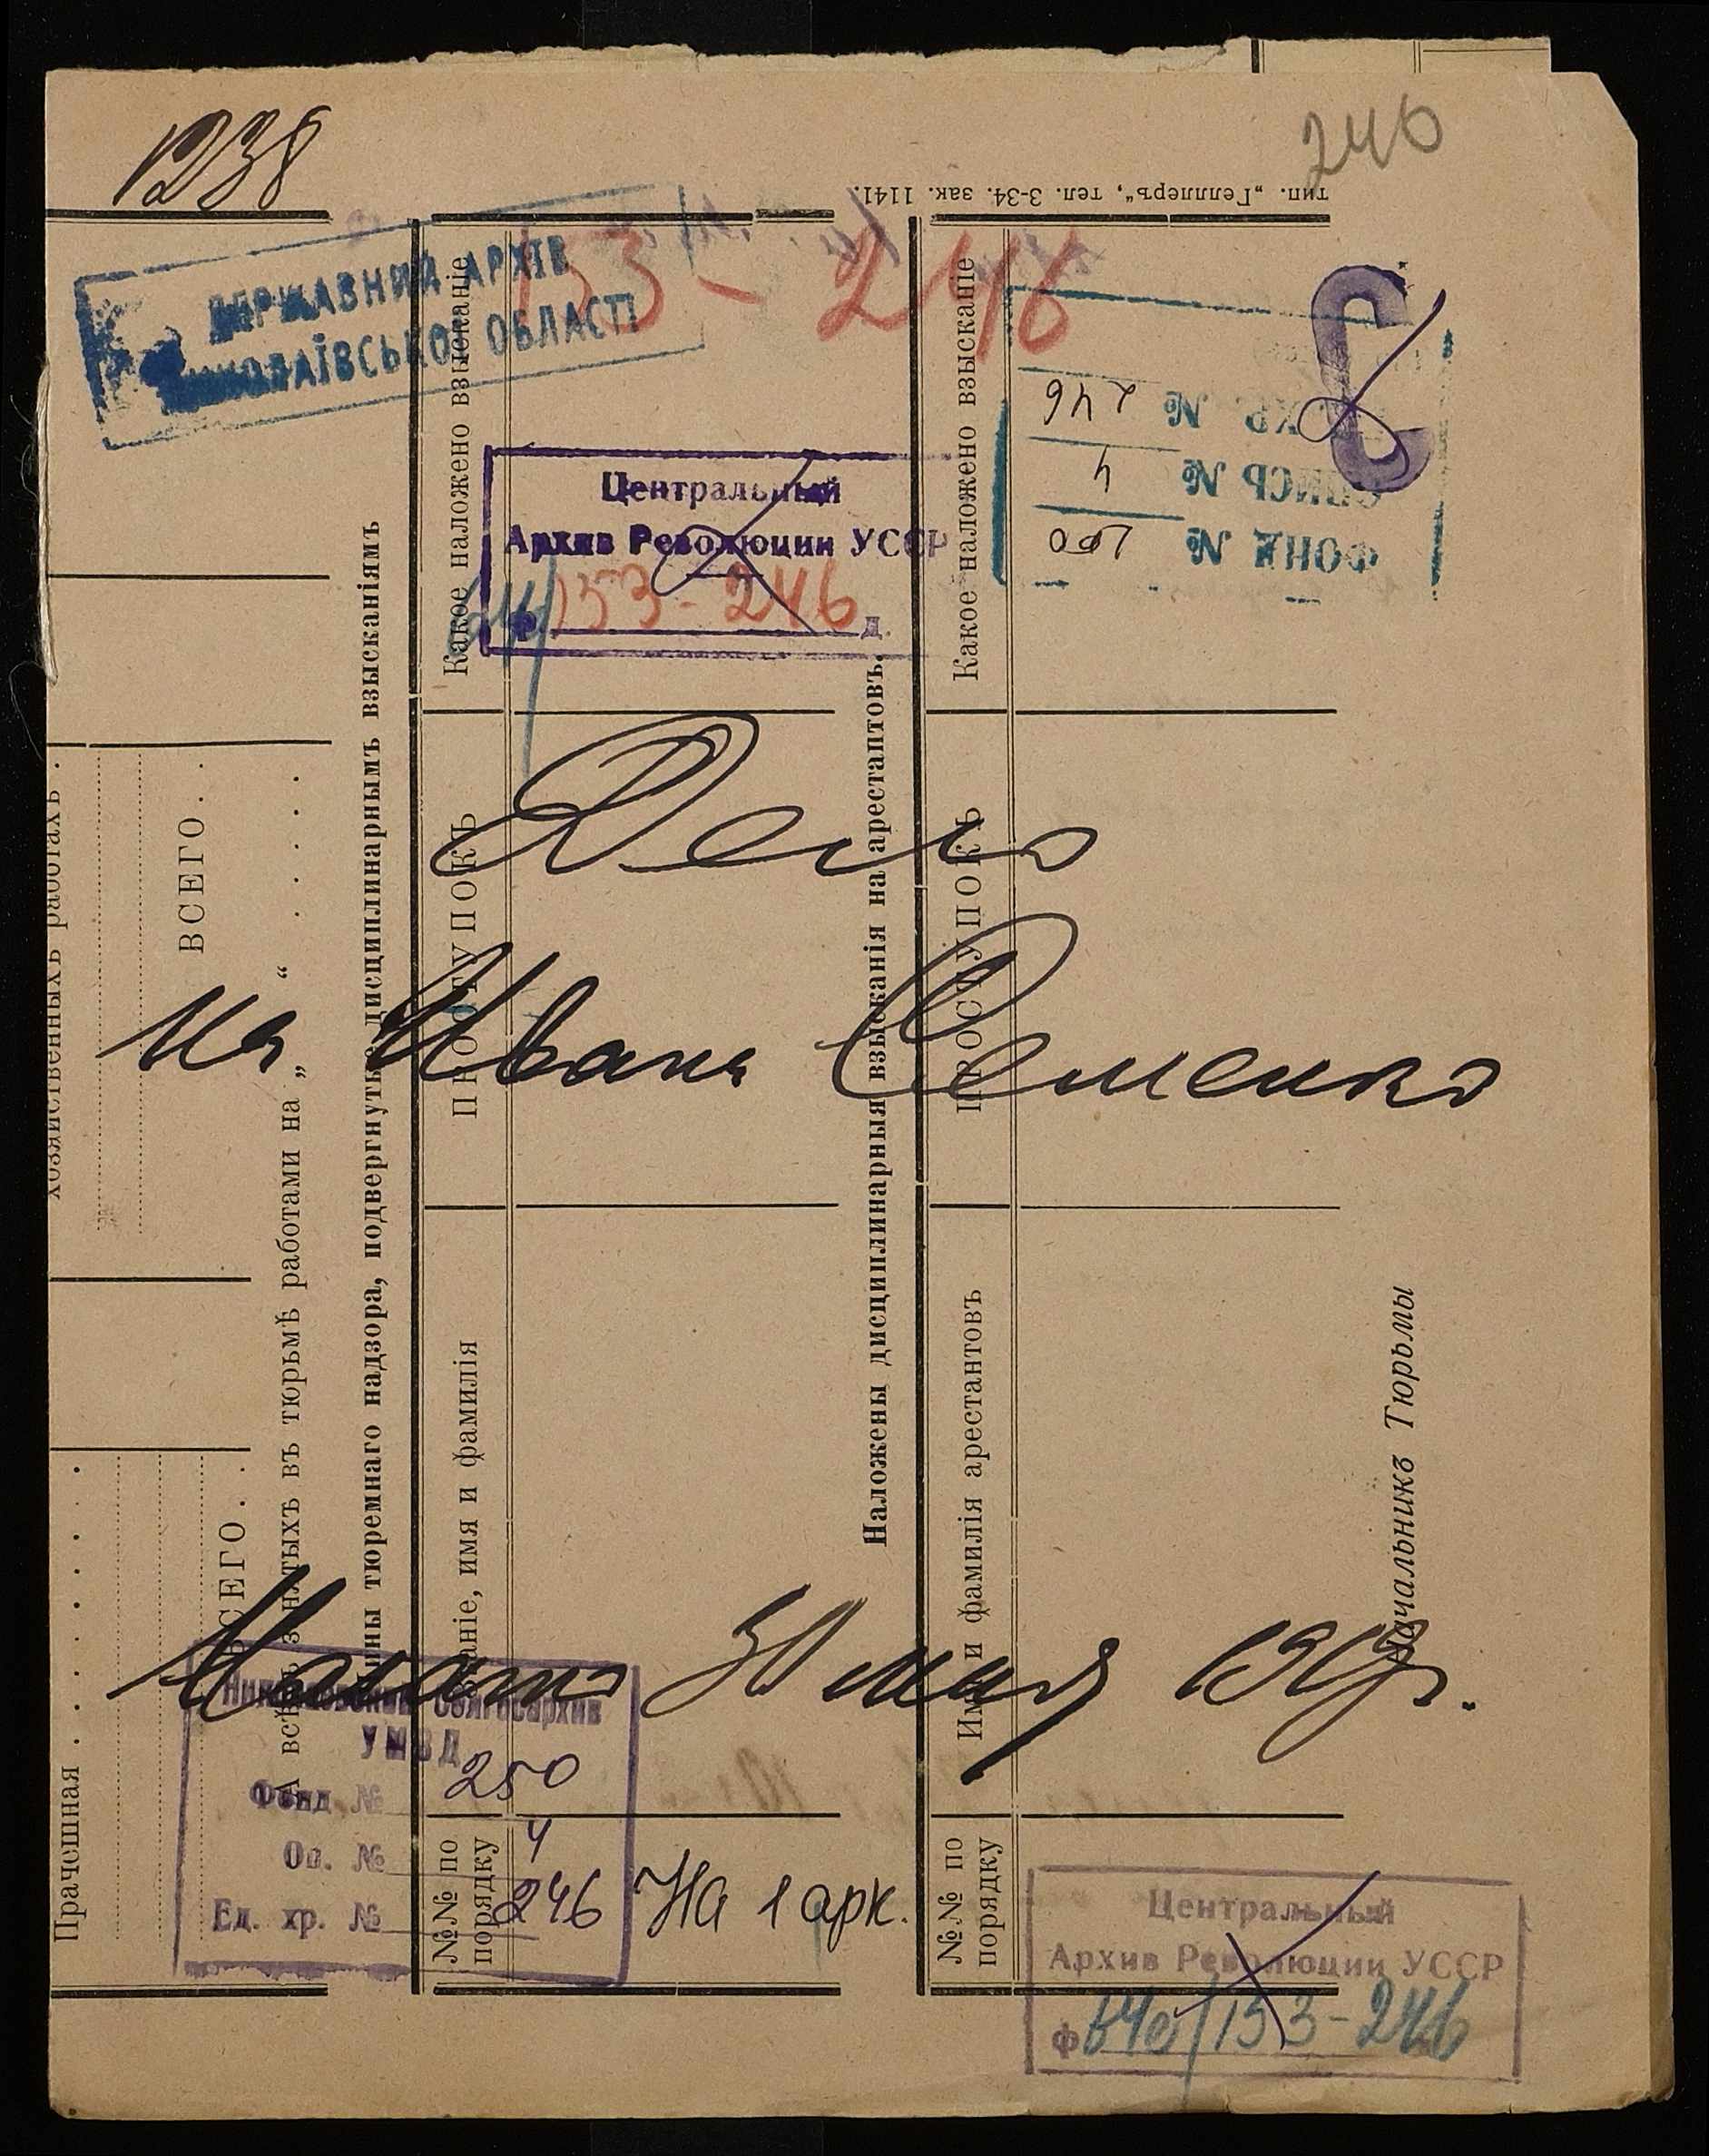 1238
246
тип. „Геллеръ“, тел. 3-34. зак. 1141.
ДЕРЖАВНИЙ АРХІВ
МИКОЛАЇВСЬКОЇ ОБЛАСТІ
153-246
Центральный
Архив Революции УССР
ф 153-246 д.
ФОНД № 250
ОПИСЬ № 4
ХР. № 246
Дело
на Ивана Семенко
Начато 30 мая
Николаевский Облгосархив
УМВД
Фонд № 250
Оп. № 4
Ед. хр. № 246
На 1 арк.
Центральный
Архив Революции УССР
ф 640/153-246
хозяйственныхъ работахъ
ВСЕГО
Прачешная
ВСЕГО
А всѣхъ занятыхъ въ тюрьмѣ работами на „ “
Чины тюремнаго надзора, подвергнутые дисциплинарнымъ взысканіямъ
№№ по порядку
Званіе, имя и фамилія
ПРОСТУПОКЪ
Какое наложено взысканіе
Наложены дисциплинарныя взысканія на арестантовъ.
№№ по порядку
Имя и фамилія арестантовъ
ПРОСТУПОКЪ
Какое наложено взысканіе
Начальникъ Тюрьмы